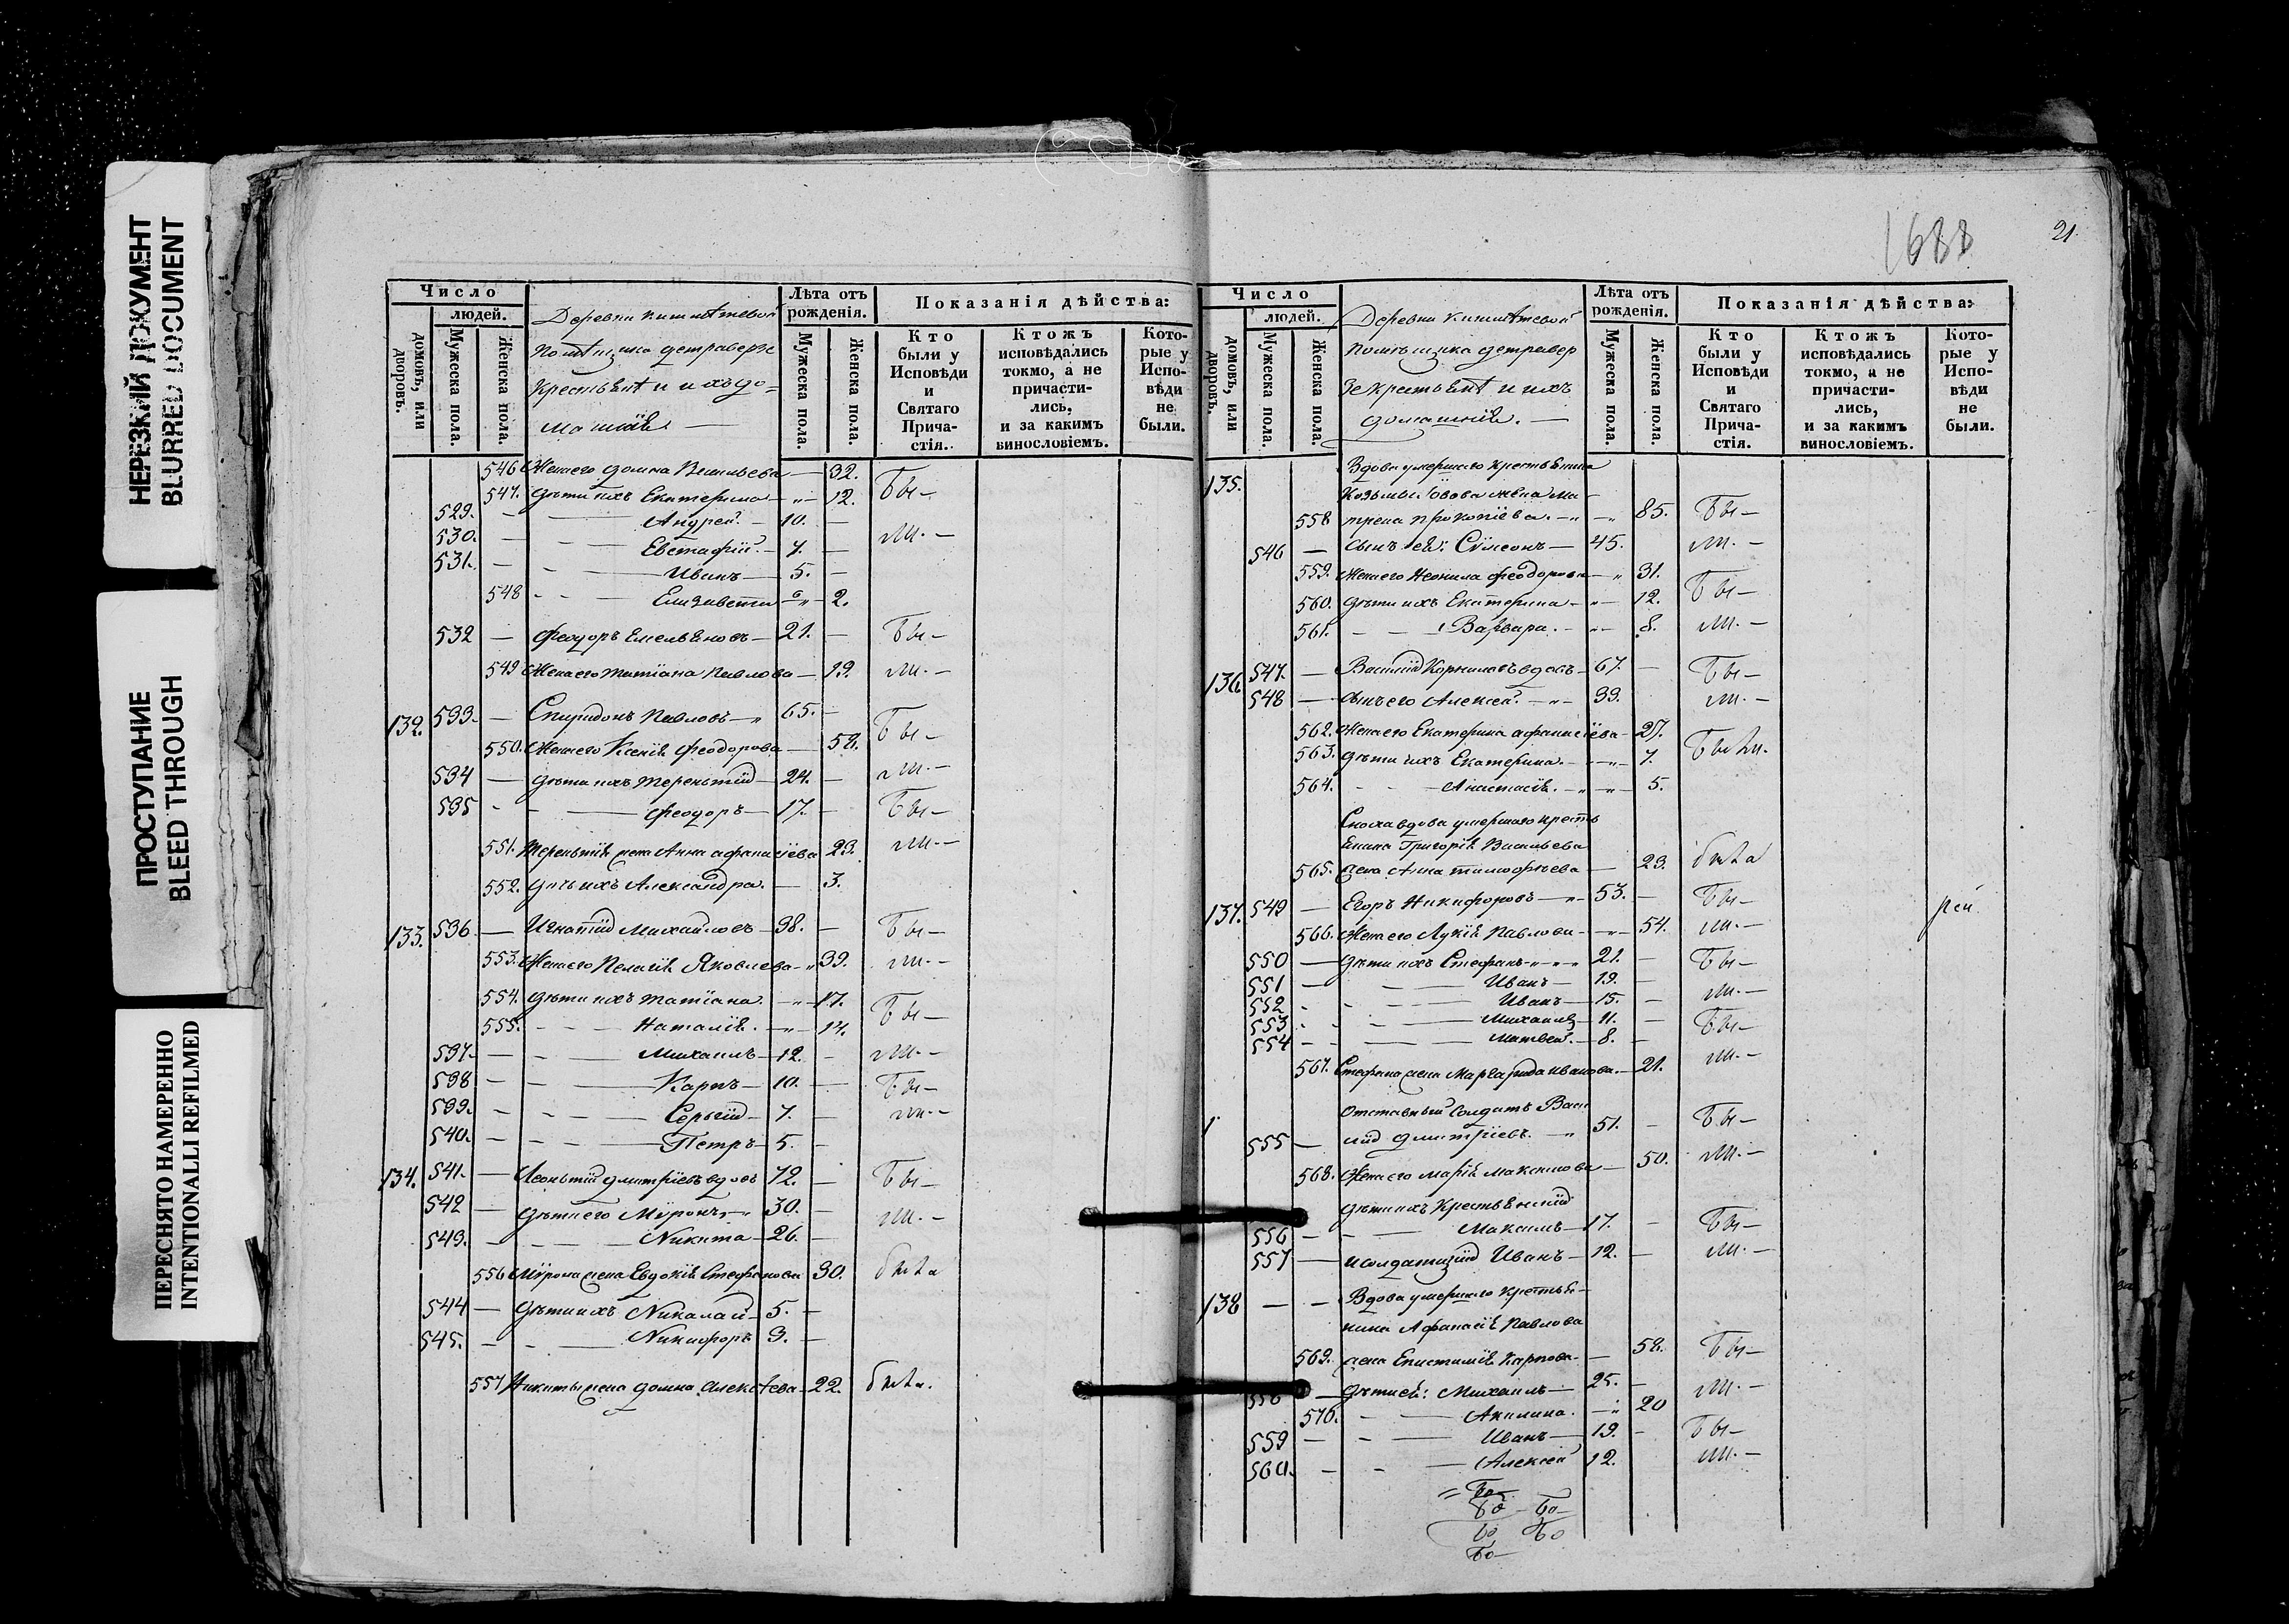 НЕРЕЗКИЙ ДОКУМЕНТ
BLURRED DOCUMENT
ПРОСТУПАНИЕ
BLEED THROUGH
ПЕРЕСНЯТО НАМЕРЕННО
INTENTIONALLI REFILMED
1688
21.
Число
людей.
домовъ, или дворовъ.
Мужеска пола.
Женска пола.
Деревни
крестьянѣ и ихъ до=
машнiе
Лѣта отъ рожденія.
Мужеска пола.
Женска пола.
Показанія дѣйства:
Кто были у Исповѣди и Святаго Прича-стія.
Ктожъ исповѣдались токмо, а не причасти-лись, и за какимъ винословіемъ.
Кото-рые у Испо-вѣди не были.
546 Жена его Домна Васильева — 32. Бы—
547. Дѣти ихъ Екатерина — 12.
529. Андрей. — 10. — ли. —
530. Евстафiй. — 7. —
531. Иванъ — 5. —
548 Елизавета — 2.
532 — Феодоръ Емельяновъ — 21. — Бы—
549 Жена его Татiана Павлова — 19. ли. —
132. 533. — Спиридонъ Павловъ — 65. — Бы—
550. Жена его Ксенiя Феодорова — 58.
534 — Дѣти ихъ Терентiй — 24. — ли. —
535 - - — Феодоръ — 17. — Бы—
551. Терентiя жена Анна Афанасiева 23. ли. —
552. Дочь ихъ Александра. — 3.
133. 536. — Игнатiй Михайловъ — 38. — Бы—
553. Жена его Пелагiя Яковлева — 39. ли. —
554. Дѣти ихъ Татiана. — 17. Бы—
555. - - — Наталiя. — 14.
537. — - — Михаилъ — 12. - ли. —
538 — - — Карпъ — 10. — Бы—
539. - - — Сергiй — 7. - ли. —
540. — - — Петръ — 5. -
134. 541. — Леонтiй Дмитрiевъ вдовъ 72. — Бы—
542 — Дѣти его Мѵронъ — 30. - ли. —
543. — - — Никита — 26. —
556 Мѵрона жена Евдокiя Стефанова 30. была
544 — Дѣти ихъ Николай — 5. -
545. — - — Никифоръ 3. —
557 Никиты жена Домна Алексѣева — 22. была.
Число
людей.
домовъ, или дворовъ.
Мужеска пола.
Женска пола.
Деревни
крестьянѣ и ихъ
домашнiе. —
Лѣта отъ рожденія.
Мужеска пола.
Женска пола.
Показанія дѣйства:
Кто были у Исповѣди и Святаго Прича-стія.
Ктожъ исповѣдались токмо, а не причасти-лись, и за какимъ винословіемъ.
Кото-рые у Испо-вѣди не были.
135. Вдова умершаго крестьянина
Козьмы жена Ма-
558 трена Прокопiева. — 85. Бы—
546 — Сынъ ея: Сѵмеонъ — 45. ли. —
559. Жена его Неонила Феодорова — 31.
560. Дѣти ихъ Екатерина — 12. Бы—
561. - — Варвара. — 8. ли. —
136 547. — Василiй Корниловъ вдовъ — 67. — Бы—
548 — Сынъ его Алексѣй. — 39. ли. —
562. Жена его Екатерина Афанасiева — 27.
563. Дѣти ихъ Екатерина. — 7. Были.
564. - - — Анастасiя. — 5.
Сноха вдова умершаго кресть
янина Григорiя Васильева
565. жена Анна Тимофѣева — 23. была
137. 549 — Егоръ Никифоровъ — 53. — Бы—
566. Жена его Лукiя Павлова — 54. ли. —
550 — Дѣти ихъ Стефанъ — 21. — Бы—
551 — - — Иванъ — 19. -
552 - - — Иванъ — 15. — ли. —
553 - - — Михаилъ — 11. —
554 - - — Матвей. — 8. — Бы—
567. Стефана жена Маргарида Иванова. — 21. ли. —
Отставный Солдатъ Васи
555 — лiй Дмитрiевъ. — 51. — Бы—
568. Жена его Марiя Максимова — 50. ли. —
Дѣти ихъ Крестьянскiй
556 — - — Максимъ — 17. - Бы—
557 — и Солдатскiй Иванъ — 12. — ли. —
138 — — Вдова умершаго крестья-
нина Афанасiя Павлова
569. жена Епистимiя Карпова — 58. Бы—
558 — Дѣти ея: Михаилъ — 25. — ли. —
570. - — Акилина. — 20
559 — - — Иванъ — 19. - Бы—
560. - - — Алексѣй 12. ли. —